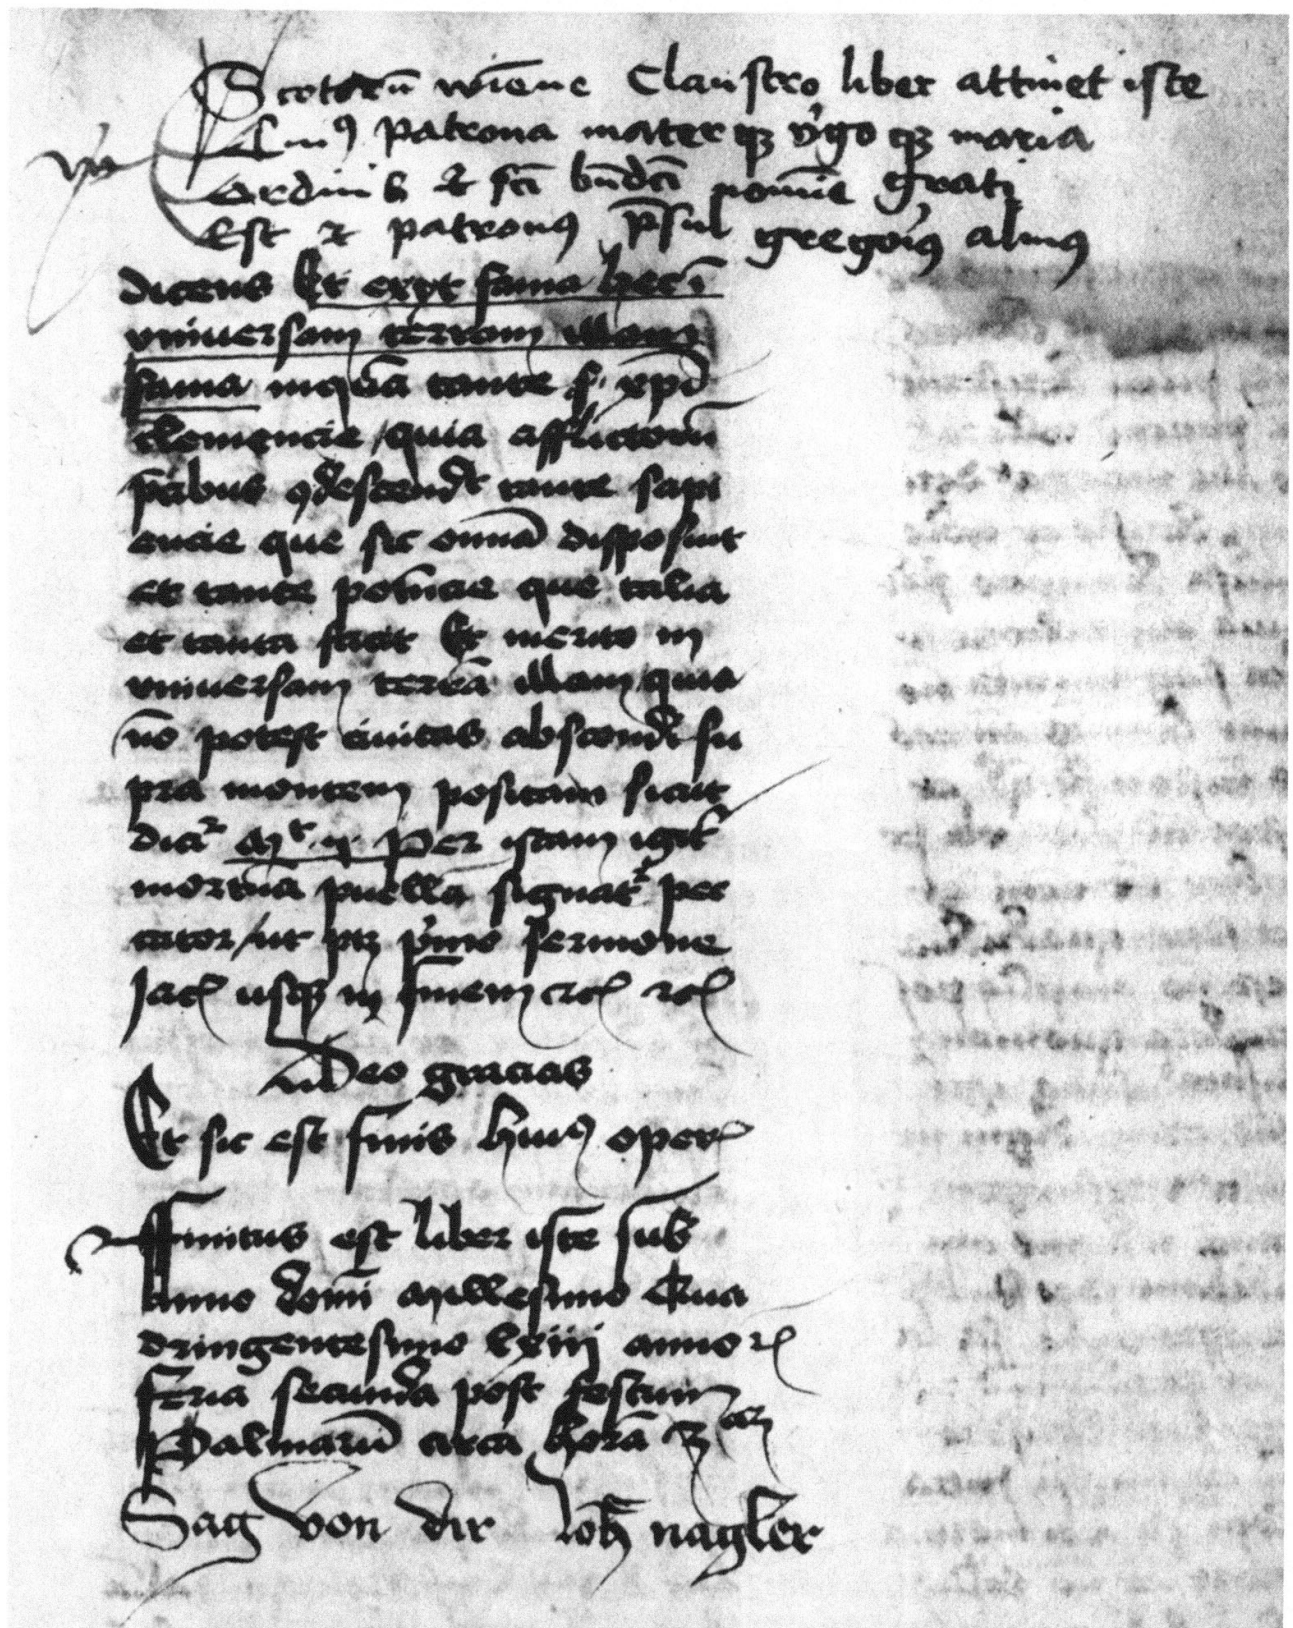 Scotorū wiēne Claustro liber attinet iste
Cuiꝰ patrona materqꝫ v'goqꝫ maria
Ordinis et sci bn̄dci nomīe grati
Est et patronꝰ p̄sul gregoriꝰ almꝰ
dicens Et exyt fama hec ī
vniuersam terram illam
fama inquā tante s. xpi
clemencie / quia afflictorū
p̄cibus ꝯdescendit tante sapi
encie que sic omnia disposuit
et tante potēcie que talia
et tanta facit Et merito in
vniuersam terrā illam / quia
nō potest ciuitas abscondi su
pra montem positam sicut
dicit᷑ Mt. Per istam igit᷑
mortuā puellā signat᷑ pec
cator / ut ptꝫ p'mo sermone
usqꝫ in finem etc̄ etc̄
Deo gracias
Et sic est finis huiꝰ operis
Finitus est liber iste sub
Anno domi Millesimo Qua
dringentesimo lxiiij annorꝫ
feria secunda post festum
Palmarū circa horā
Sag von dir Joh nagler